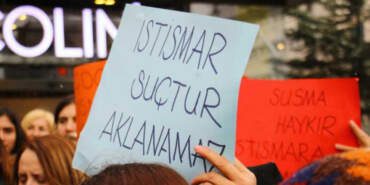 COLIN
İSTİSMAR
SUÇTUR
AKLANAMAZ
SUSMA
HAYKIR
İSTİSMARA